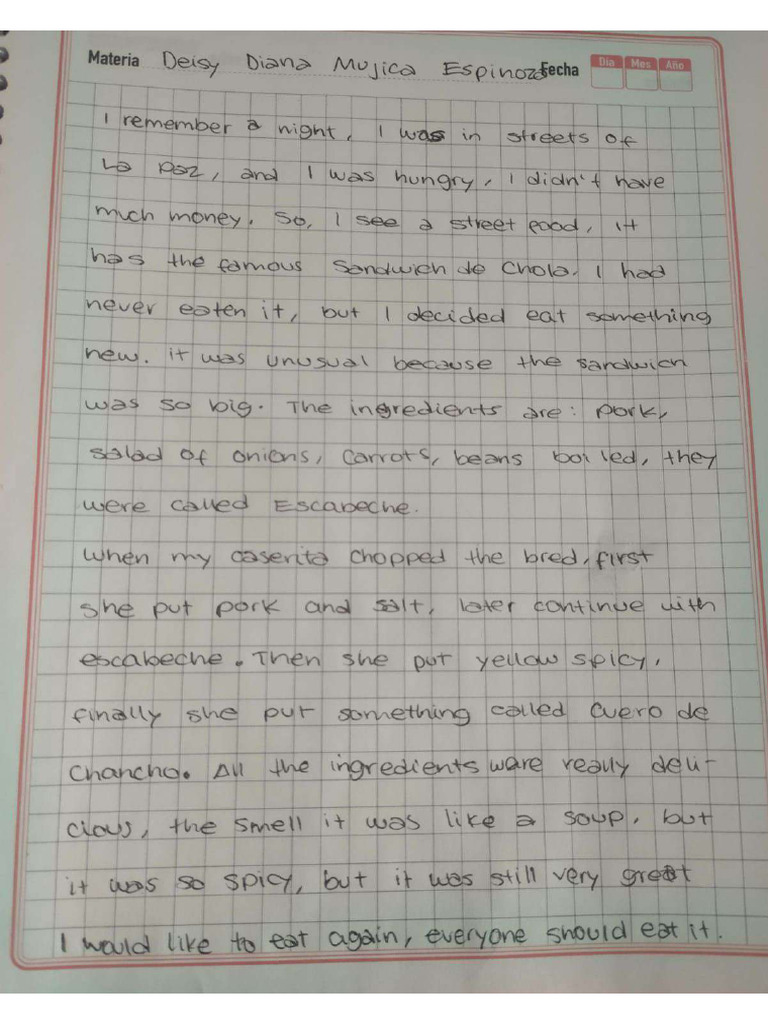 Materia Deisy Diana Mujica Espinoza Fecha Día Mes Año
I remember a night, I was in streets of
La Paz, and I was hungry, I didn't have
much money. So, I see a street food, it
has the famous Sandwich de Chola. I had
never eaten it, but I decided eat something
new. it was unusual because the sandwich
was so big. The ingredients are: pork,
salad of onions, carrots, beans boiled, they
were called Escabeche.
When my caserita chopped the bred, first
she put pork and salt, later continue with
escabeche. Then she put yellow spicy,
finally she put something called Cuero de
Chancho. All the ingredients ware really deli-
cious, the smell it was like a soup, but
it was so spicy, but it was still very great
I would like to eat again, everyone should eat it.